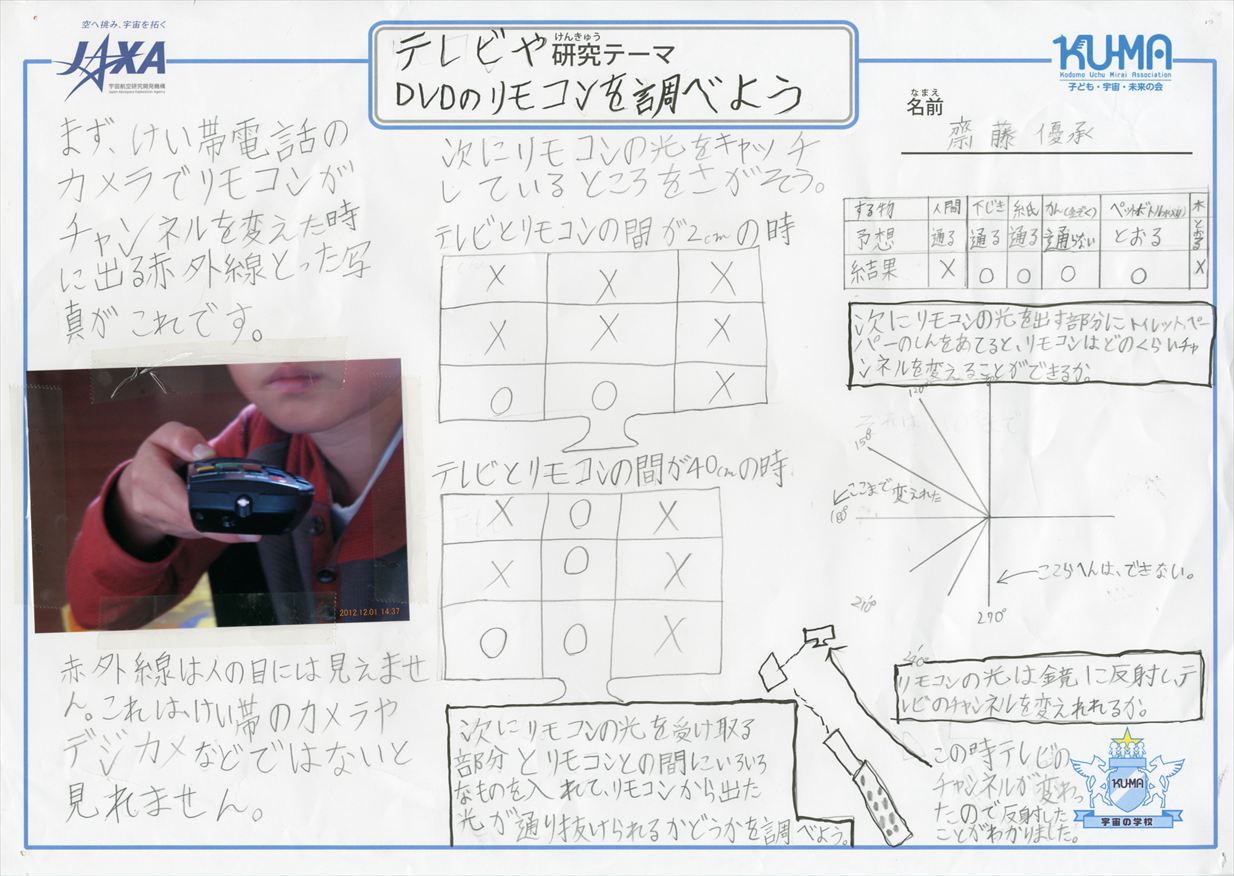 空へ挑み、宇宙を拓く
JAXA
宇宙航空研究開発機構
Japan Aerospace Exploration Agency
けんきゅう
研究テーマ
テレビや
DVDのリモコンを調べよう
KU-MA
Kodomo Uchu Mirai Association
子ども・宇宙・未来の会
なまえ
名前
齋藤優承
まず、けい帯電話の
カメラでリモコンが
チャンネルを変えた時
に出る赤外線とった写
真がこれです。
2012.12.01 14:37
赤外線は人の目には見えませ
ん。これは、けい帯のカメラや
デジカメなどではないと
見れません。
次にリモコンの光をキャッチ
しているところをさがそう。
テレビとリモコンの間が2cmの時
X X X
X X X
○ ○ X
テレビとリモコンの間が40cmの時
X ○ X
X ○ X
○ ○ X
次にリモコンの光を受け取る
部分とリモコンとの間にいろいろ
なものを入れて、リモコンから出た
光が通り抜けられるかどうかを調べよう。
する物 人間 下じき 紙 かん(金ぞく) ペットボトル 木
予想 通る 通る 通る 通らない とおる とおる
結果 X ○ ○ ○ ○ X
次にリモコンの光を出す部分にトイレットペー
パーのしんをあてると、リモコンはどのくらいチャ
ンネルを変えることができるか。
120°
150°
ここまで変えれた
180°
ここらへんは、できない。
210°
270°
240°
リモコンの光は鏡に反射し、テ
レビのチャンネルを変えれれるか。
この時テレビの
チャンネルが変わっ
たので反射した
ことがわかりました。
KUMA
宇宙の学校